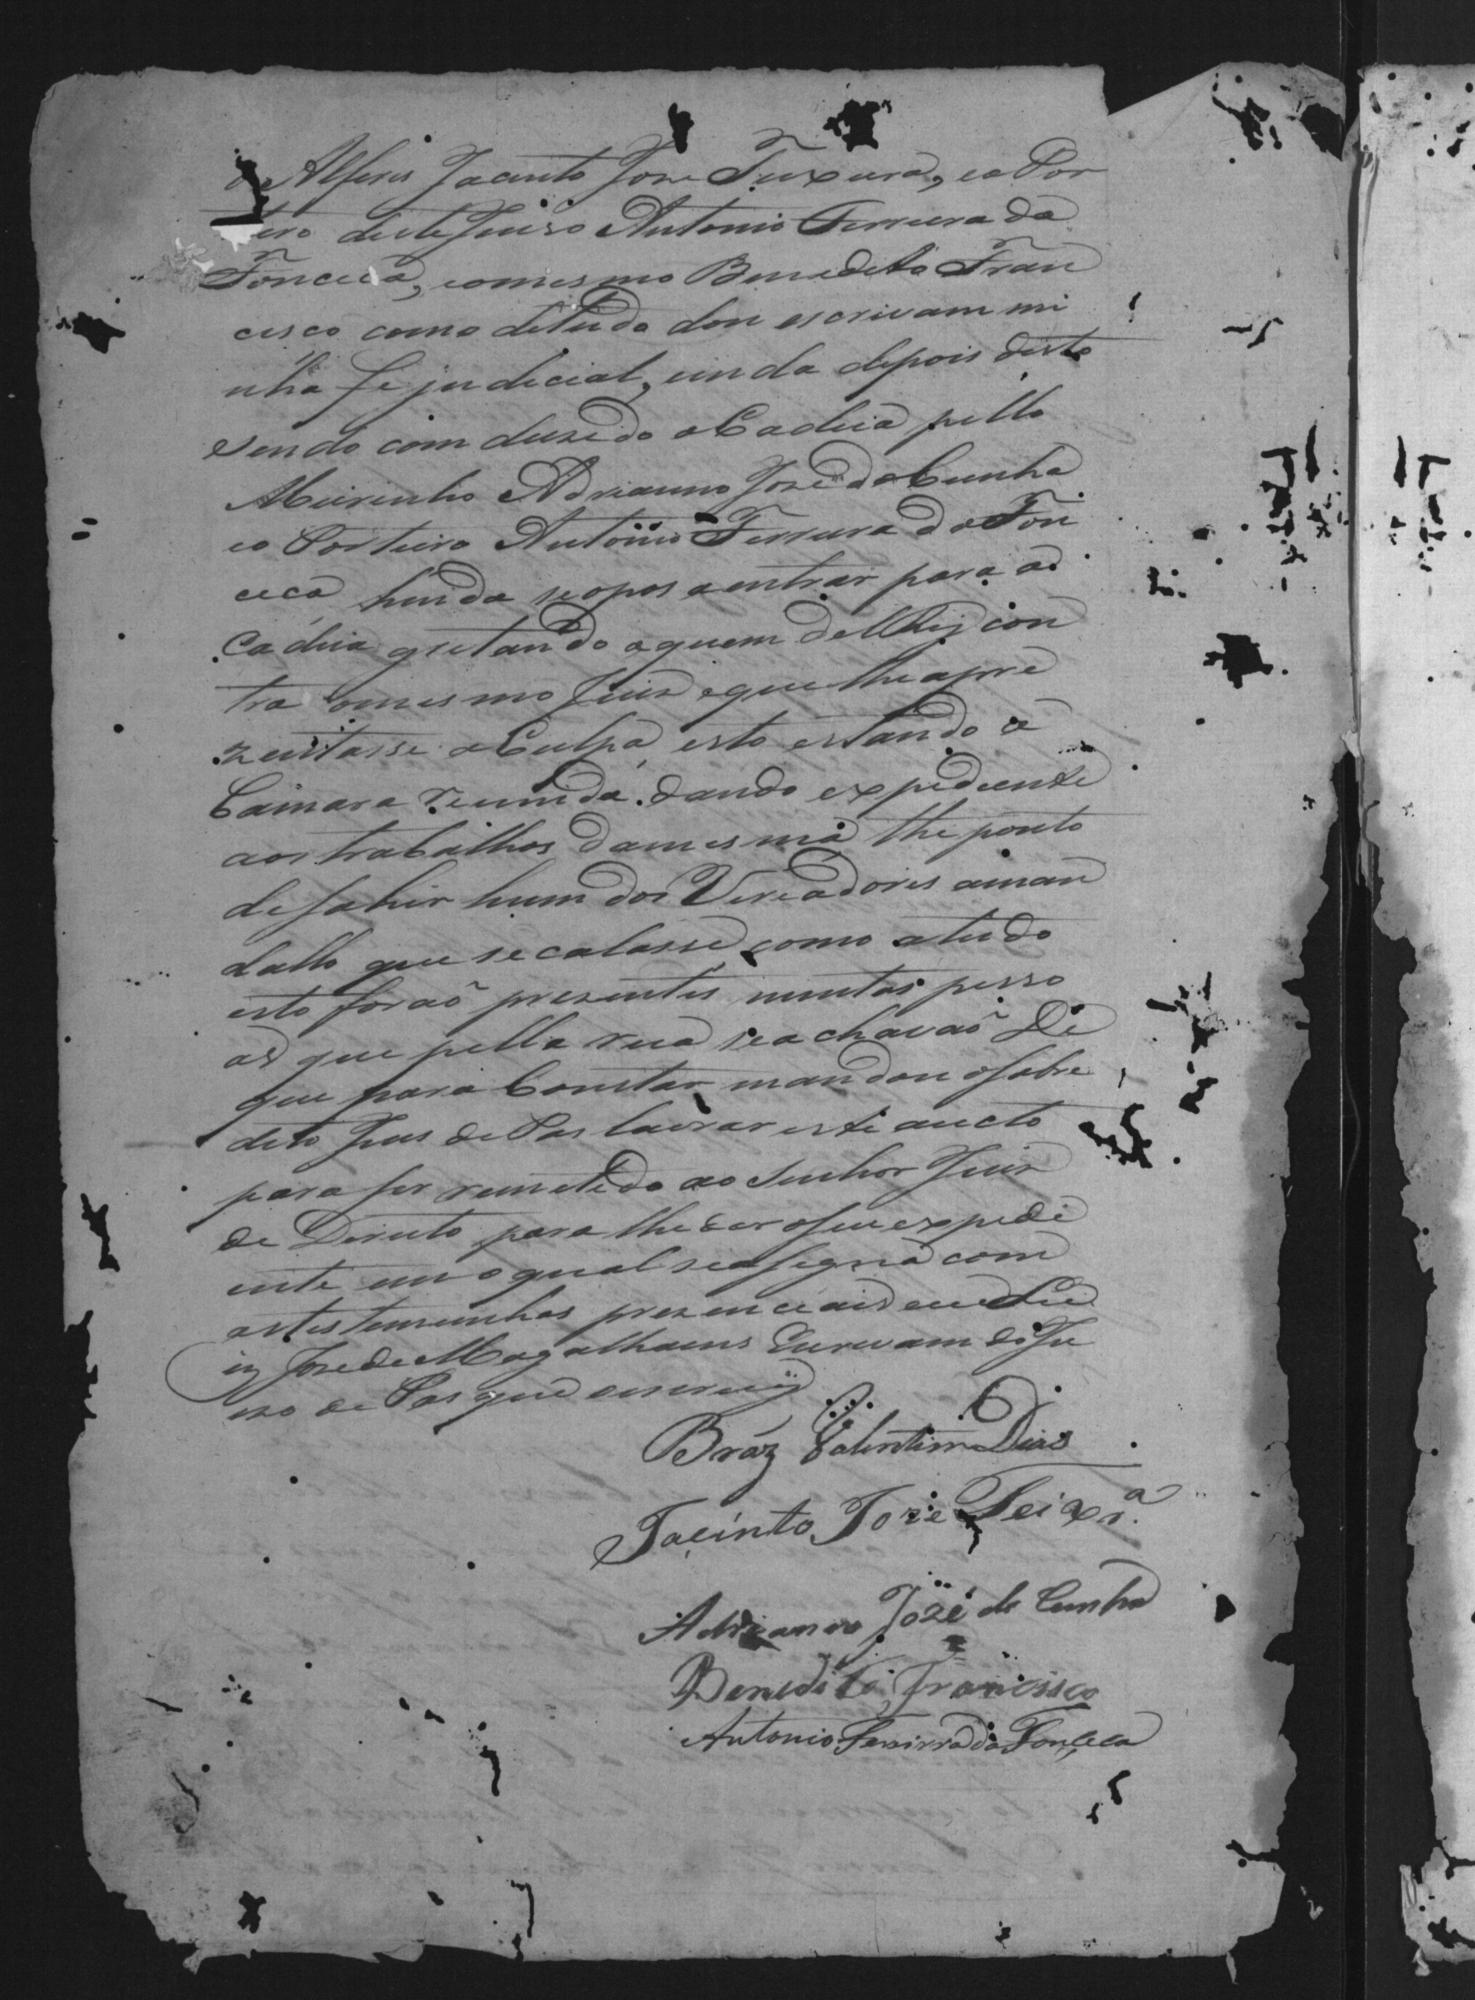 o Alferis Jacinto Joze Teixeira, eo Por
teiro deste Juizo Antonio Ferreira da
Fonceca, eomesmo Benedito Fran
cisco como detudo dou escrivam mi
nha fe judecial, einda depois desto
sendo com duzido a Cadeia pello
Meirinho Adrianno Joze da Cunha
eo Porteiro Antonio Ferreira da Fon
ceca hinda seopos aentrar para a
Cadeia gritando aquem del Rej con
tra omesmo Juiz eque lhe apre
zentasse a Culpa, esto estando a
Camara reunida dando expediente
aos trabalhos damesma lhe ponto
desahir hum dos Vereadores aman
dallo que se calasse, como atudo
esto foraõ prezentes muntas pesso
as que pella rua seachavaõ De
que para Constar mandou osobre
dito Juis de Pas lavrar este aucto
para ser remetido ao Senhor Juiz
de Direito para lhe dar oseu expedi
ente em oqual seasigna com
astestemunhas prezenciais eeu Lu
iz Joze de Magalhaens Escrivam do Ju
izo de Pas que oescrevij
Bráz Valentim Dias
Jacinto Joze Teixr.ª
Adrianno Jozé da Cunha
Benedito Francisco
Antonio Ferreira da Fonceca